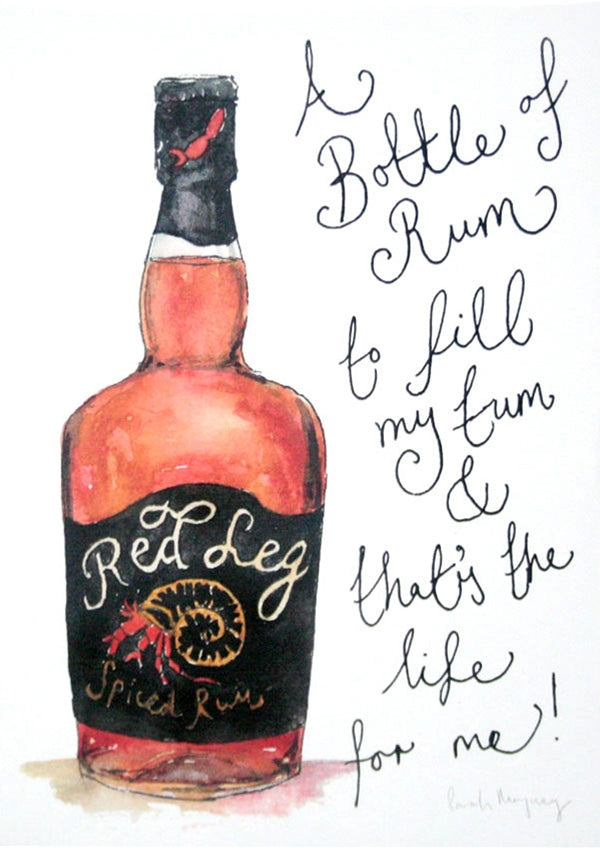 A
Bottle of
Rum
to fill
my tum
&
that's the
life
for me!
Red Leg
Spiced Rum